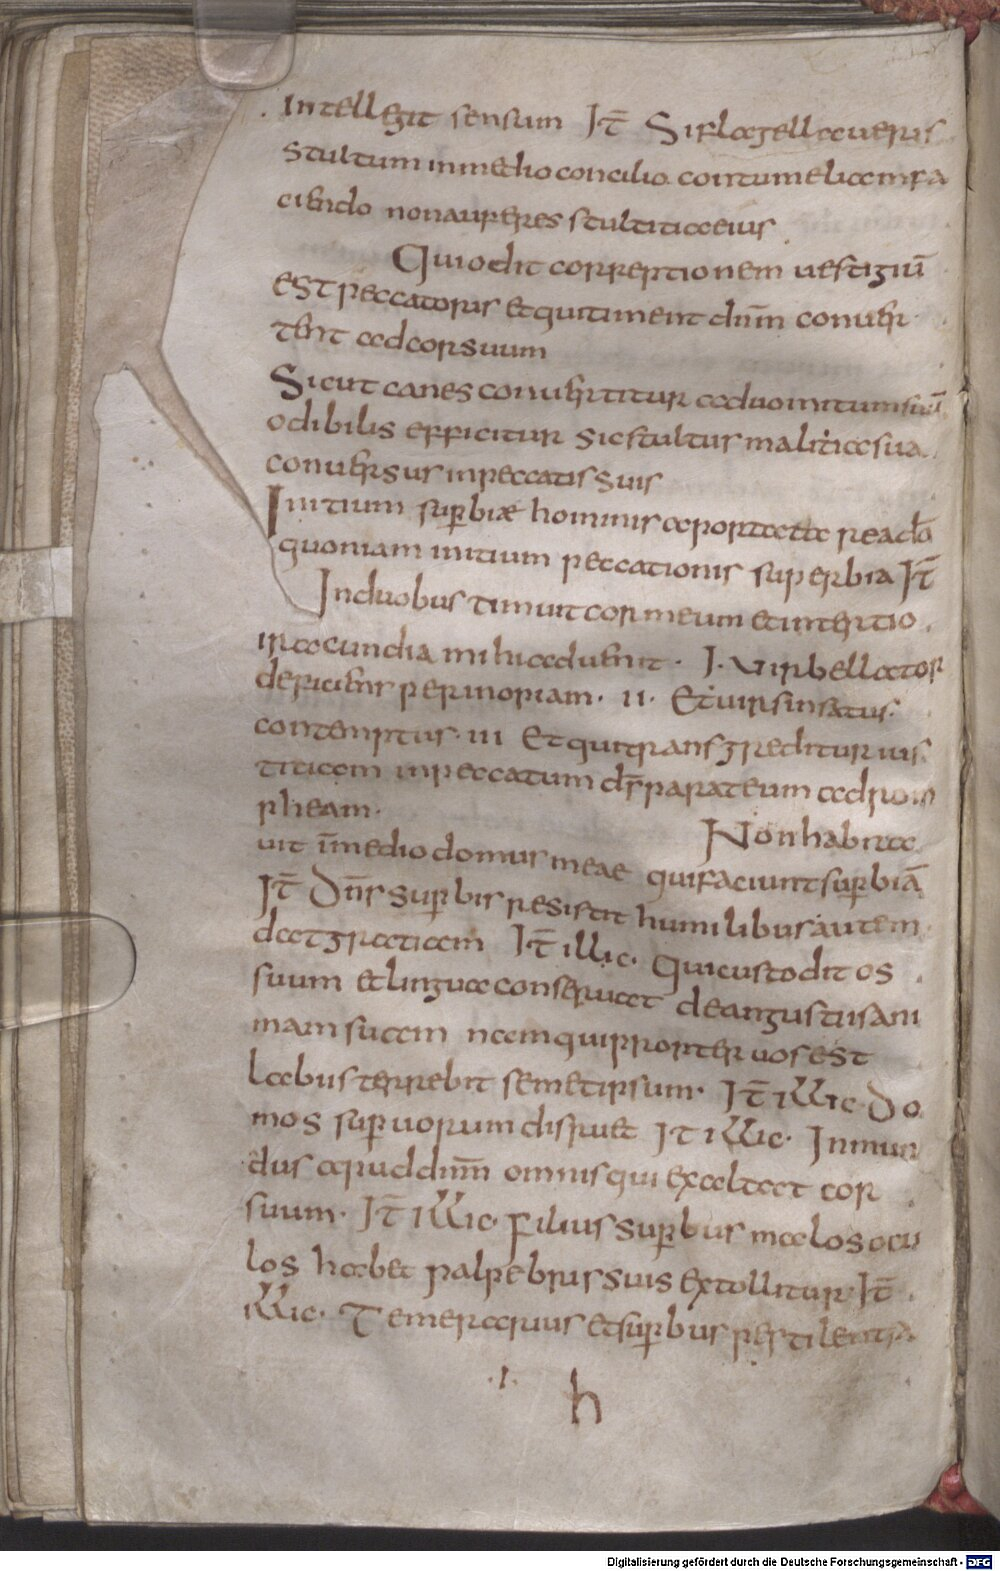 intellegit sensum It̄ Si flagellaueris
stultum inmedio concilio contumeliam fa
ciendo non auferes stultitia eius
Qui odit correptionem uestigiū
est peccatoris et qui timent dnm̄ conuer
tent ad cor suum
Sicut canes conuertitur ad uomitum suū
odibilis efficitur sic stultus malitia sua
conuersus in peccatis suis
Initium sup̱biæ hominis apostatare a dō
quoniam initium peccationis superbia It̄
In duobus timuit cor meum et in tertio
iracundia mihi aduenit · I · Uir bellator
deficiens per inopiam · II · Et uir sinsatus
contemptus · III Et qui transgreditur ius
titiam in peccatum dr̄ parat eum ad rom
pheam ·
Non habita
uit īmedio domus meae qui faciunt sup̱biā
It̄ Dn̄s sup̱bis resistit humilibus autem
dat gratiam It̄ illic · Qui custodit os
suum et lingua conseruat de angustiis ani
mam suam nam qui propter uos est
labus terrebit semetipsum · It̄ illic · Do
mos sup̱uorum disruet It illic · Inmun
dus aput dnm̄ omnis qui exaltat cor
suum · It̄ illic · Filius sup̱bus malos ocu
los habet palpebris suis extollitur · It̄
illic · Temerarius et sup̱bus pestilentia
· I · h
Digitalisierung gefördert durch die Deutsche Forschungsgemeinschaft - DFG